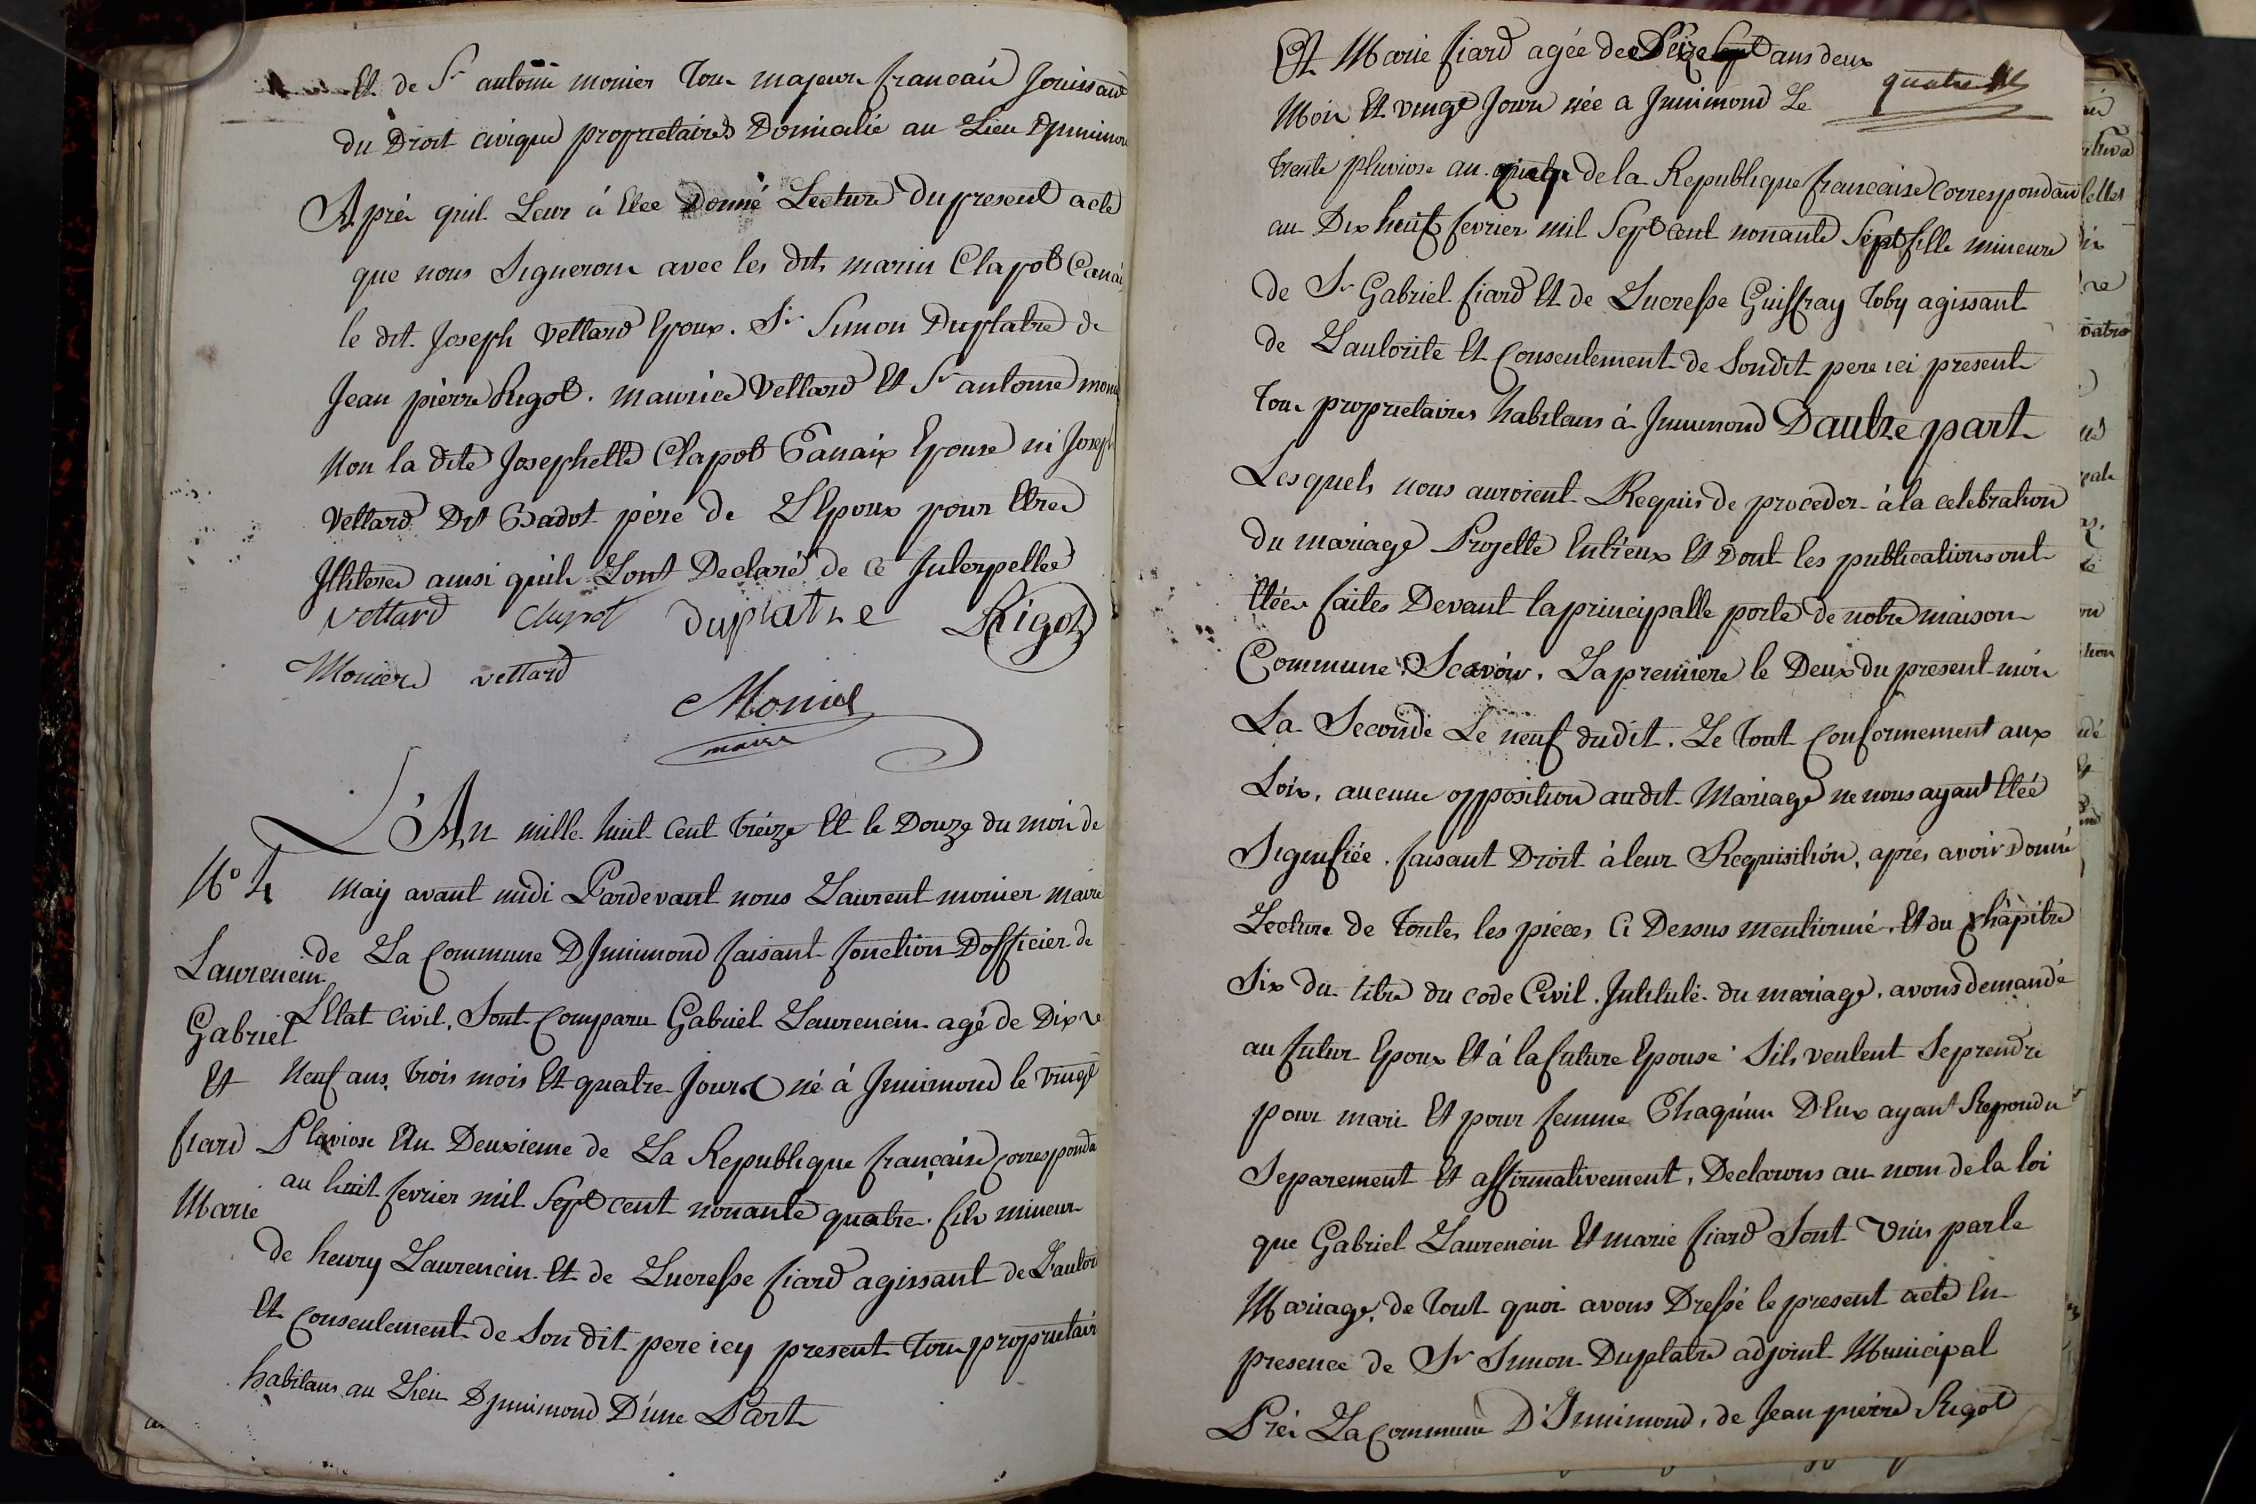 Et de Sr antoine monier Tous majeurs francais Jouissant
du Droit civique propriétaires Domicalié au Lieu Djnnimond
Aprés quil Leur à Etee Donné Lecture du present acte
que nous Signerons avec les dits marin Clapot Canaix
le dit Joseph Vettard Epoux. Sr Simon Duplatre de
Jean pierre Rigot. maurice Vettard Et Sr antoine monier
Non la dite Josephette Clapot Canaix Epouse ni Joseph
Vettard Dit Badot père de L'Epoux pour Etres
Illiteres ainsi quils Lont Declaré de ce Interpellés
Vettard Clapot duplatre Rigot
Moniers vettard
Monier
maire
L'An mille huit Cent Tréize Et le Douze du mois de
No 4 May avant midi Pardevant nous Laurent monier maire
de La Commune D'Jnnimond faisant fonction D'officier de
Laurencin
L'Etat Civil, Sont Comparu Gabriel Laurencin agé de Dix
Gabriel
Et Neuf ans, Trois mois Et quatre Jours né à Jnnimond le Vingt
fiard Plaviose An Deuxieme de La Republique française Correspondant
au huit fevrier mil Sept cent nonante quatre. fils mineur
Marie
de henry Laurencin Et de Lucresse fiard agissant de L'autorité
Et Consentement de Son dit pere icy present Tous propriétaires
habitans au Lieu Djnnimond D'une Part
Et Marie fiard agée de Seize ans deux
Mois Et vingt Jours née a Jnnimond Le quatre
trente pluviose an de la Republique francaise Correspondant
au Dix heuf fevrier mil Sept cent nonante Sept fille mineure
de Sr Gabriel fiard Et de Lucresse Guiffray Toby agissant
de L'autorite Et Consentement de Sondit pere ici present
Tous propriétaires habitans à Jnnimond D'autre part
Lesquels nous auroient Requis de proceder à la celebration
du mariage Projetté Entreux Et Dont les publications ont
Etées faites Devant la principalle porte de notre maison
Commune, Scavoir, La premiere le Deux du present mois
La Seconde Le neuf dudit. Le Tout Conformement aux
Loix, aucune opposition audit Mariage ne nous ayant Etée
Signifiée, faisant Droit à leur Requisition, aprés avoir Donné
Lecture de Toutes les piéces Ci Dessus mentionné, Et du Châpitre
Six du titre du code Civil, Intitulé du mariage, avons demandé
au futur Epoux Et à la future Epouse Sils veulent Seprendre
pour mari Et pour femme Chaqu'un D'Eux ayant Repondu
Separement Et affirmativement, Declarons au nom de la loi
que Gabriel Laurencin Et marie fiard Sont Unis par le
Mariage, de Tout quoi avons Dressé le present acte En
presence de Sr Simon Duplatre adjoint Municipal
Prés La Commune D'Jnnimond, de Jean pierre Rigot